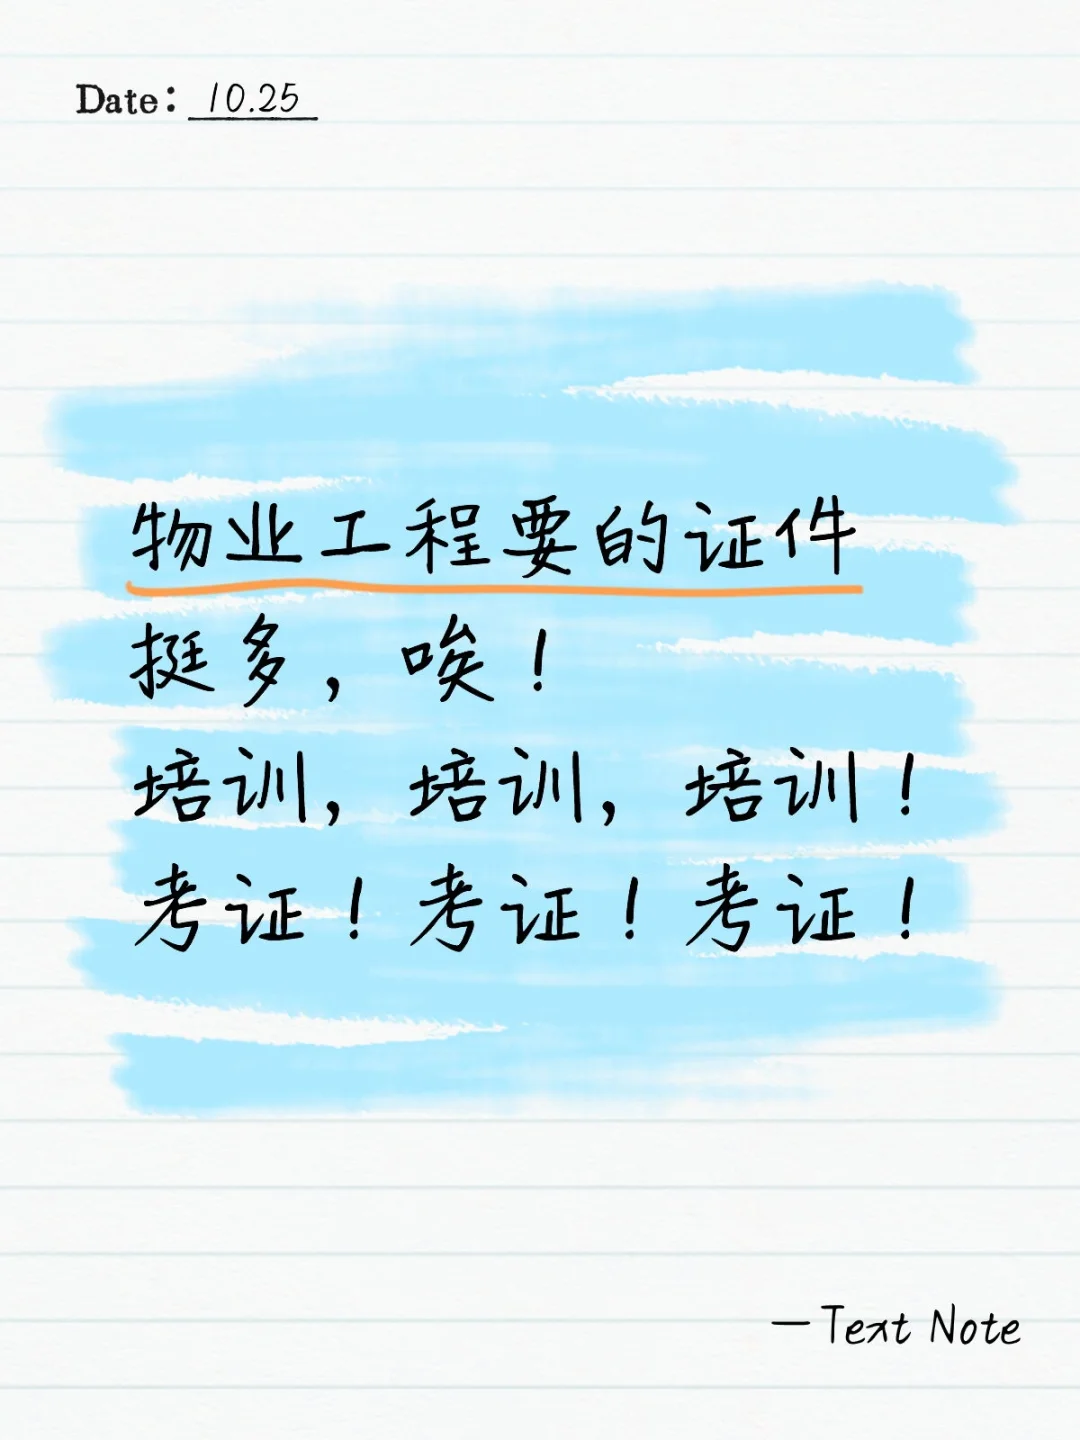 Date: 10.25
物业工程要的证件
挺多，唉！
培训，培训，培训！
考证！考证！考证！
—Text Note